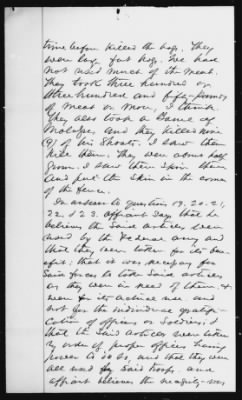 time before killed the hogs. They
were large fat hogs. We had
not used much of the meat.
They took three hundred or
three hundred and fifty pounds
of meat or more, I think.
They also took a of
and they killed nine
(9) of his Shoats. I saw them
kill them. They were about half
grown. I saw them skin them
and put the skin in the corner
of the fence.
In answer to question 19. 20. 21,
22. & 23. affiant says that he
believes the said articles were
used by the Federal army and
that they were taken for its ben-
efit; that it was necessary for
said forces to take said articles
as they were in need of them &
were for its actual use and
not for the individual gratifi-
cation of officers or soldiers;
that the said articles were taken
by order of proper officers having
power to do so, and that they were
all used for said troops, and
affiant believes the